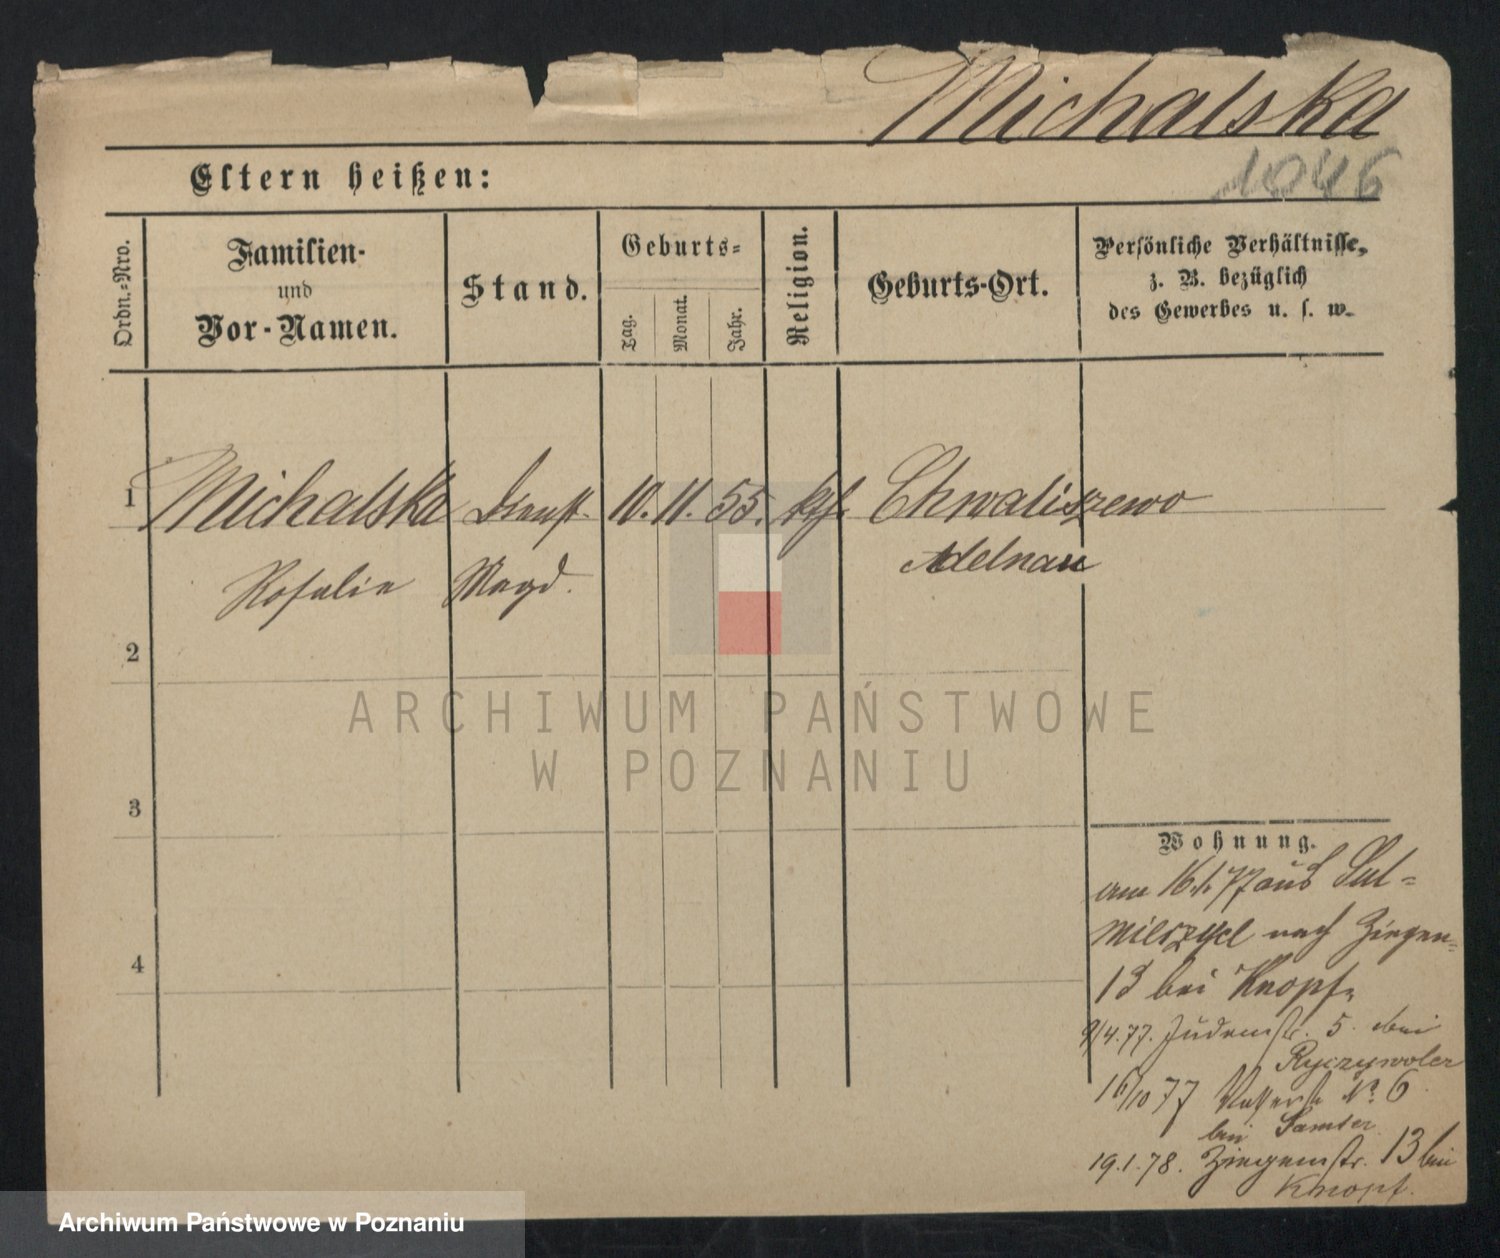 Michalska
1046
Eltern heißen:
Ordn.-Nro.
Familien-
und
Vor-Namen.
Stand.
Geburts-
Tag.
Monat.
Jahr.
Religion.
Geburts-Ort.
Persönliche Verhältnisse,
z. B. bezüglich
des Gewerbes u. s. w.
1 Michalska Dienst- 10. 11. 55. kth. Chwaliszewo
Rosalie Magd. Adelnau
2
3
4
Wohnung.
am 16.1.77 aus Sul-
mierzycl nach Ziegen-
13 bei Knopf.
9/4.77. Judenstr. 5. bei
Ryczywoler
16/10 77 Wasserstr No. 6
bei Samter
19.1.78. Ziegenstr. 13 bei
Knopf.
ARCHIWUM PAŃSTWOWE
W POZNANIU
Archiwum Państwowe w Poznaniu